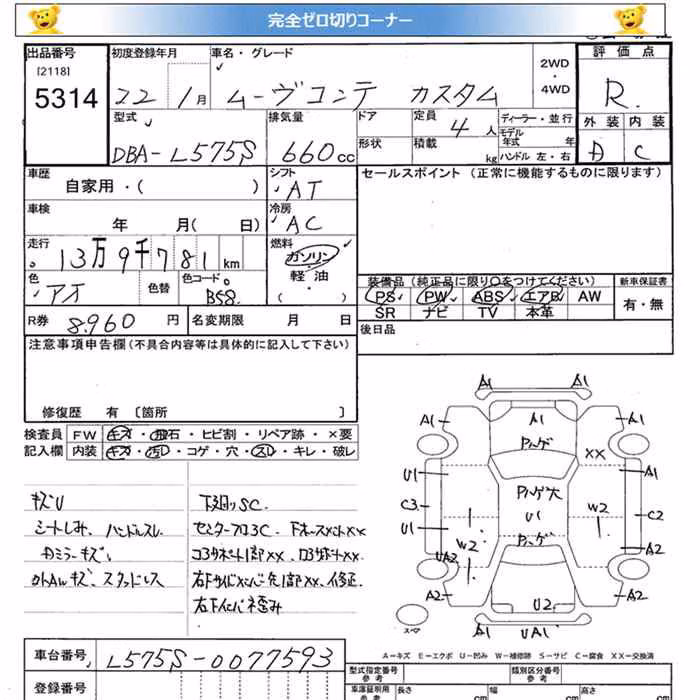 完全ゼロ切りコーナー
出品番号 初度登録年月 車名・グレード 2WD 評価点
[2118] ・
5314 22 1月 ムーヴコンテ カスタム 4WD R
型式 排気量 ドア 定員 4人 ディーラー・並行 外装 内装
DBA-L575S 660cc 形状 積載 kg モデル年式 年 A C
ハンドル 左・右
車歴 シフト セールスポイント (正常に機能するものに限ります)
自家用・( ) AT
車検 冷房
年 月( 日) AC
走行 燃料
13万9千781km ガソリン
色 色替 色コード 軽油 装備品 (純正品に限り○をつけてください) 新車保証書
アオ B58 ( ) PS PW ABS エアB AW 有・無
SR ナビ TV 本革
R券 8,960円 名変期限 月 日 後日品
注意事項申告欄(不具合内容等は具体的に記入して下さい)
修復歴 有 〔箇所 〕
検査員 FW キズ・飛石・ヒビ割・リペア跡・×要
記入欄 内装 キズ・汚レ・コゲ・穴・スレ・キレ・破レ
キズU 下廻りSC.
シートしみ、ハンドルスレ センターフロ3C.
ミラーキズ、
キズ、スタッドレス 修正.
歪み
A1 A1
A1 A1 A1
パハゲ XX
U1 パハゲ大 A1
C3 U1 W2 C2
U1 パハゲ
UA2 W2 A2
A2 U2 A2
スペア A1 UA1 A1
A=キズ E=エクボ U=凹み W=補修跡 S=サビ C=腐食 XX=交換済
車台番号 L575S-0077593
型式指定番号 参考 類別区分番号 参考
登録番号 車庫証明用 参考 長さ cm 幅 cm 高さ cm